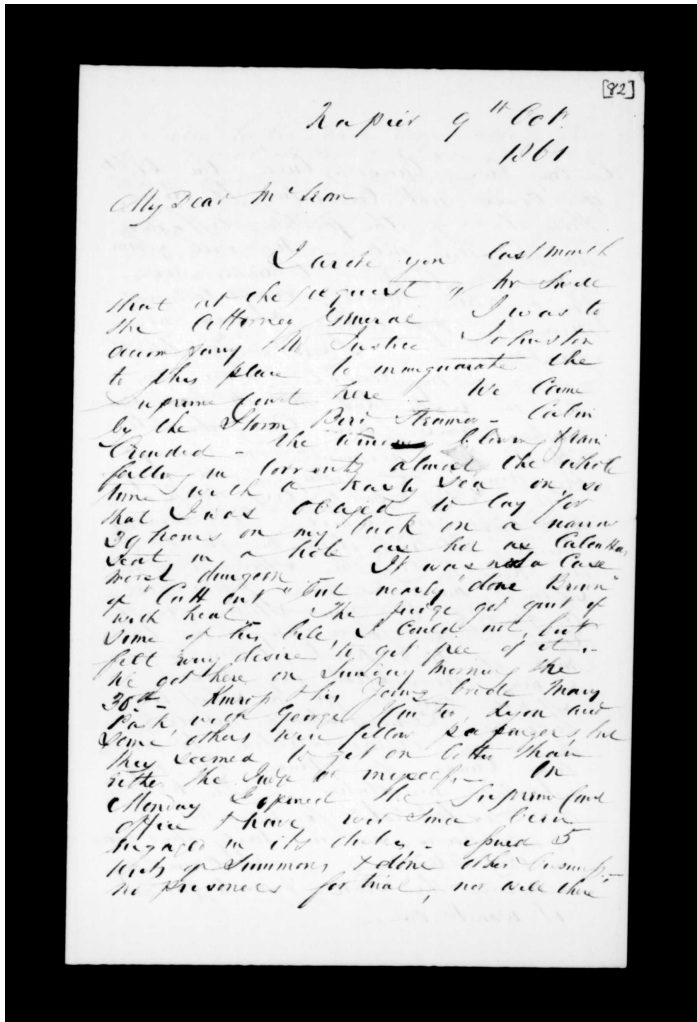 [82]
Napier 9th Oct.
1861
My Dear McLean
I wrote you last month
that at the request of Mr
the Attorney General I was to
accompany Mr Justice Johnston
to this place to innaugurate the
Supreme Court here - We came
by the Storm Bird Steamer - Cabin
Crowded - the blowing & rain
falling in torrents almost the whole
time with a nasty Sea on so
that I was obliged to lay for
39 hours on my back on a narrow
seat in a hole as hot as Calcuttas
worst dungeon - It was not a Case
of "Catt cut" but nearly "done Brown"
with heat - The judge got quit of
some of his bile, I could not, but
felt every desire to get free of it -
We got here on Sunday morning the
30th - & his Young bride Mary
Park with George Hunter, Lyon and
some others were fellow passengers, but
they seemed to get on better than
either the Judge or myself - On
Monday I opened the Supreme Court
office & have ever since been
engaged in its duties - issued 5
writs of Summons & done other business -
no prisoners for trial, nor will there